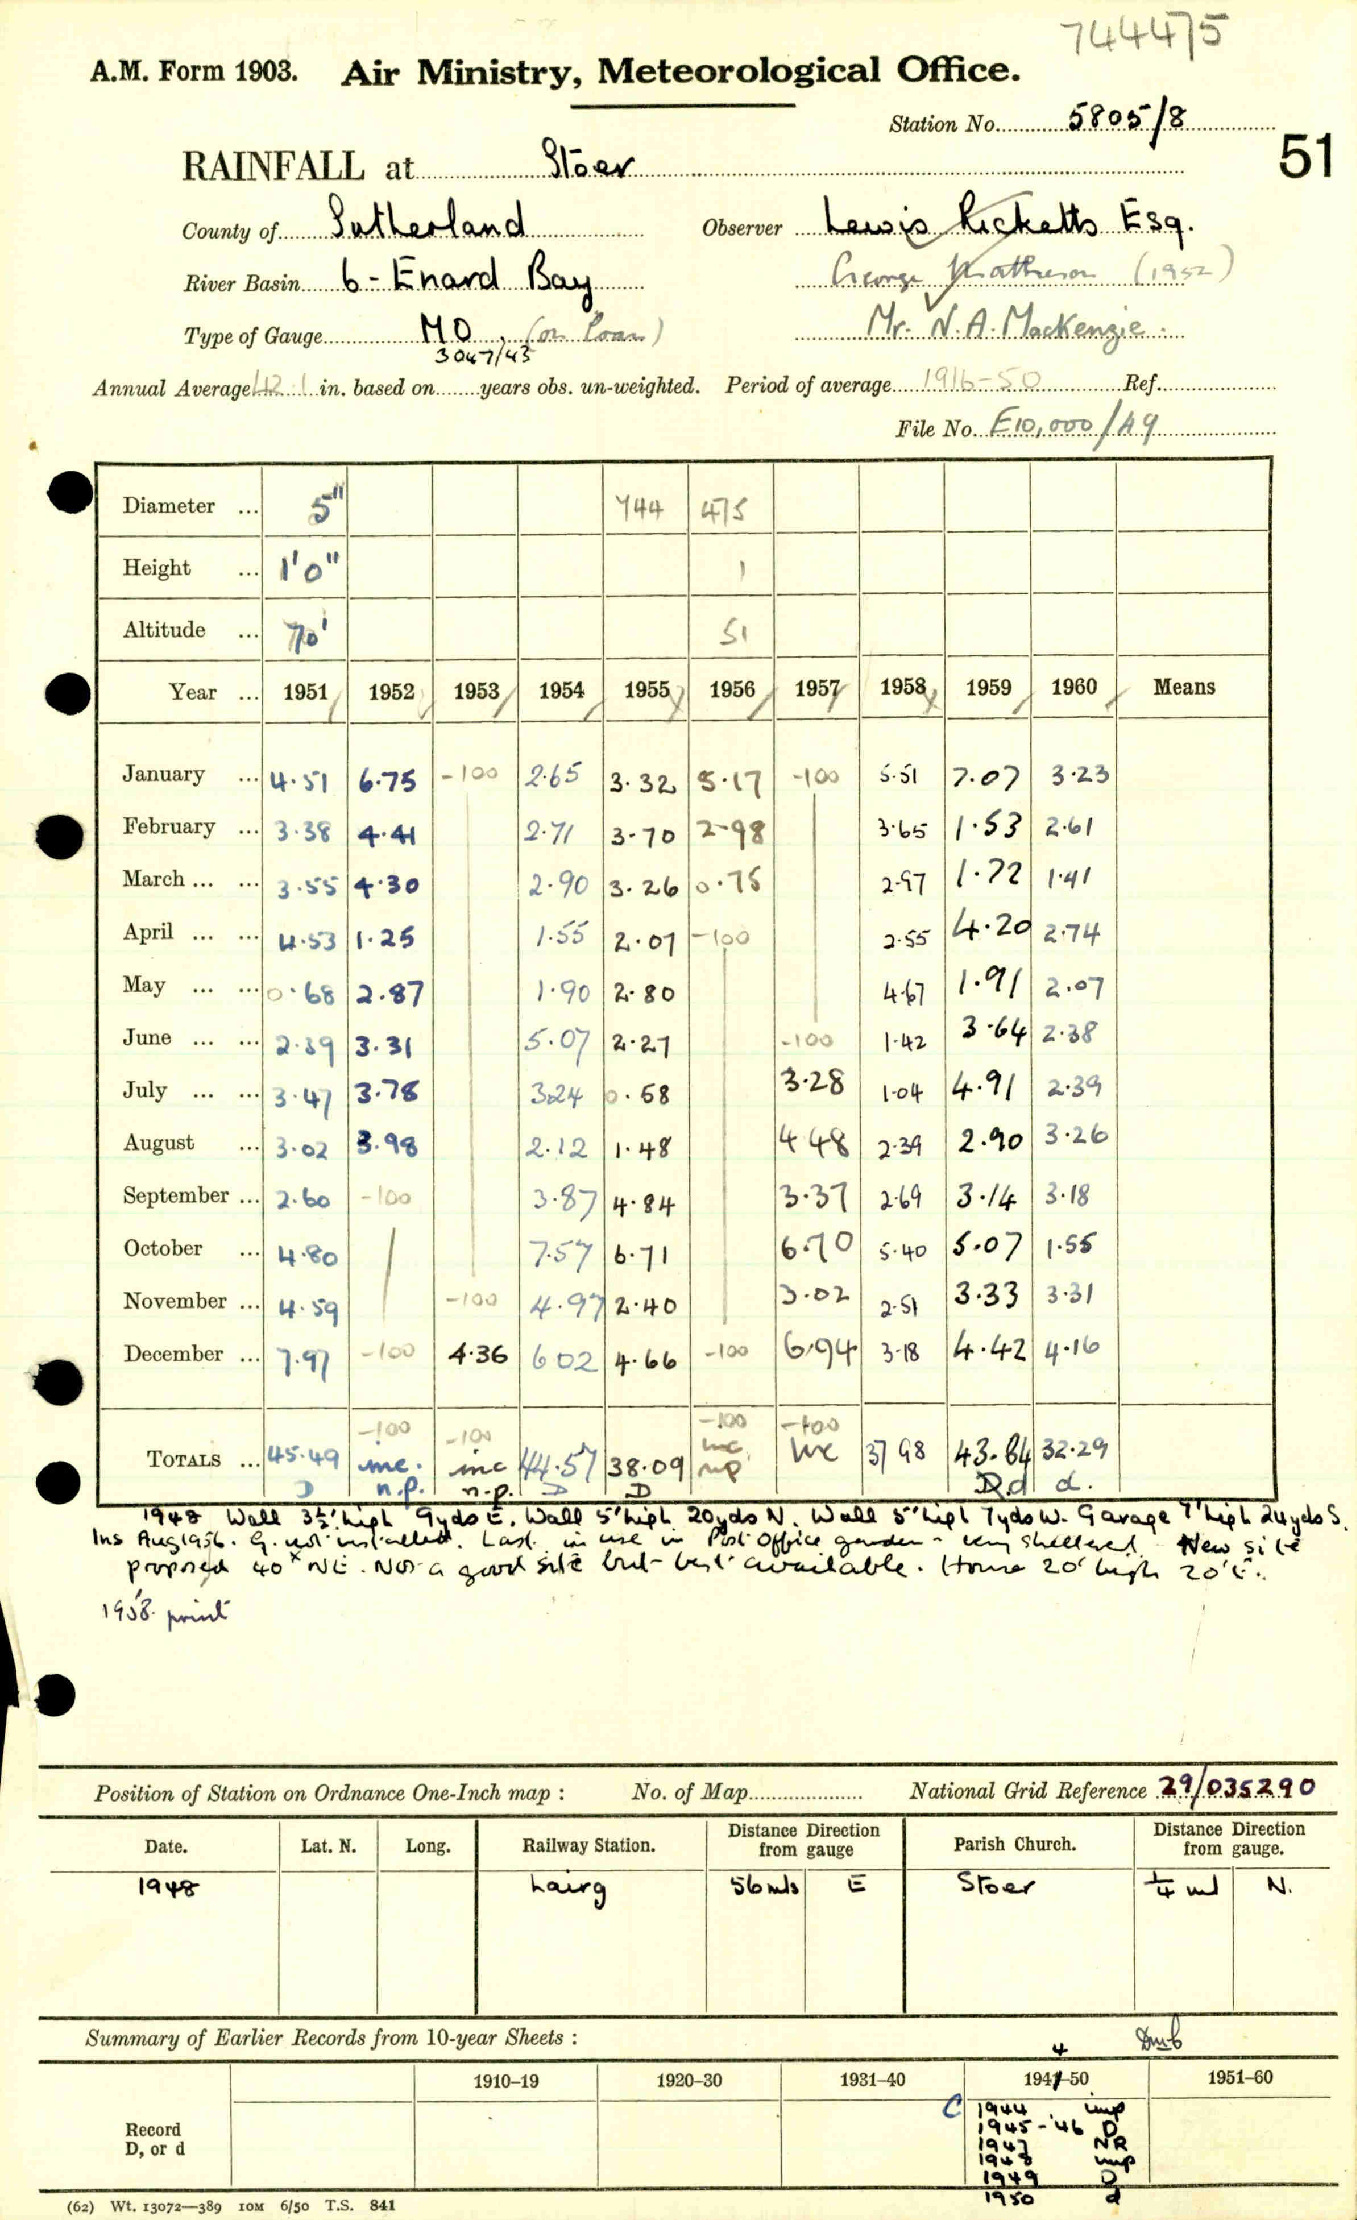 744475
A.M. Form 1903. Air Ministry, Meteorological Office.
Station No. 5805/8
51
RAINFALL at Stoer
County of Sutherland Observer Lewis Ricketts Esq.
River Basin 6 - Enard Bay George Matheson (1952)
Type of Gauge MO (on loan) Mr. N. A. Mackenzie.
3047/43
Annual Average 42.1 in. based on years obs. un-weighted. Period of average 1916-50 Ref.
File No. E10,000/49
Diameter ... 5" 744 475
Height ... 1'0" 1
Altitude ... 70' 51
Year ... 1951 1952 1953 1954 1955 1956 1957 1958 1959 1960 Means
January ... 4.51 6.75 -100 2.65 3.32 5.17 -100 5.51 7.07 3.23
February ... 3.38 4.41 2.71 3.70 2.98 3.65 1.53 2.61
March ... ... 3.55 4.30 2.90 3.26 0.75 2.97 1.72 1.41
April ... ... 4.53 1.25 1.55 2.07 -100 2.55 4.20 2.74
May ... ... 0.68 2.87 1.90 2.80 4.67 1.91 2.07
June ... ... 2.39 3.31 5.07 2.27 -100 1.42 3.64 2.38
July ... ... 3.47 3.78 3.24 0.58 3.28 1.04 4.91 2.39
August ... 3.02 3.98 2.12 1.48 4.48 2.39 2.90 3.26
September ... 2.60 -100 3.87 4.84 3.37 2.69 3.14 3.18
October ... 4.80 7.57 6.71 6.70 5.40 5.07 1.55
November ... 4.59 -100 4.97 2.40 3.02 2.51 3.33 3.31
December ... 7.97 -100 4.36 6.02 4.66 -100 6.94 3.18 4.42 4.16
-100 -100 -100 -100
TOTALS ... 45.49 inc. inc 44.57 38.09 inc. inc 37 98 43.84 32.29
D n.p. n.p. D D np D d d.
1948 Wall 3½' high 9yds E. Wall 5' high 20yds N. Wall 5' high 7yds W. Garage 7' high 24yds S.
Ins Aug 1956. G. not installed. Last in use in Post Office garden - very sheltered. New site
proposed 40ˣ NE. Not a good site but best available. House 20' high 20' E.
1958 print
Position of Station on Ordnance One-Inch map : No. of Map National Grid Reference 29/035290
Date. Lat. N. Long. Railway Station. Distance from Direction gauge Parish Church. Distance from Direction gauge.
1948 Lairg 56 mls E Stoer ¼ ml N.
Summary of Earlier Records from 10-year Sheets :
4
1910-19 1920-30 1931-40 1941-50 1951-60
Record
D, or d
C 1944 imp
1945-'46 D
1947 NR
1948 imp
1949 D
1950 d
(62) Wt. 13072—389 10M 6/50 T.S. 841